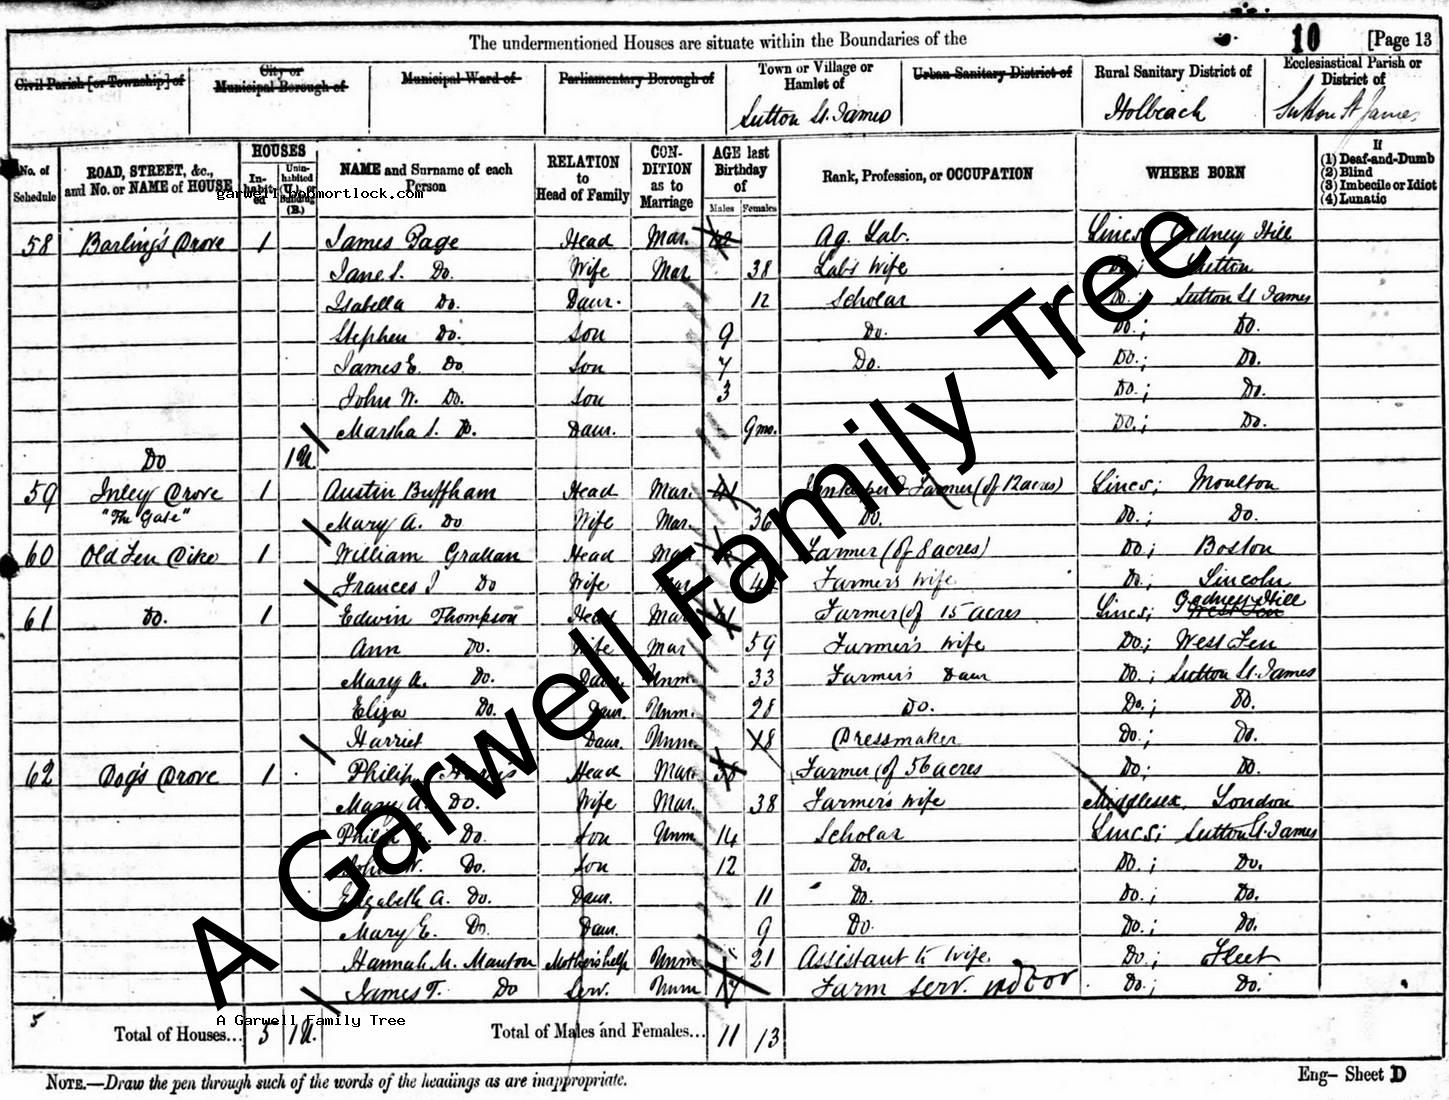 The undermentioned Houses are situate within the Boundaries of the 10 [Page 13
Civil Parish [or Township] of City or Municipal Borough of Municipal Ward of Parliamentary Borough of Town or Village or Hamlet of Urban Sanitary District of Rural Sanitary District of Ecclesiastical Parish or District of
Sutton St. James Holbeach Sutton St James
No. of Schedule ROAD, STREET, &c., and No. or NAME of HOUSE HOUSES In-habit-ed Unin-habited (U.), or Building (B.) NAME and Surname of each Person RELATION to Head of Family CON-DITION as to Marriage AGE last Birthday of Males Females Rank, Profession, or OCCUPATION WHERE BORN If (1) Deaf-and-Dumb (2) Blind (3) Imbecile or Idiot (4) Lunatic
garwell.bobmortlock.com
58 Barling's Drove 1 James Page Head Mar. Ag. Lab. Lincs Gedney Hill
Jane S. Do. Wife Mar 38 Lab's Wife Do.; Sutton
Isabella Do. Daur. 12 Scholar Do.; Sutton St James
Stephen Do. Son 9 Do. Do.; Do.
James E. Do Son 7 Do. Do.; Do.
John W. Do. Son 3 Do.; Do.
Marsha S. Do. Daur. 9 mo. Do.; Do.
Do 1 U.
59 Inley Drove 1 Austin Buffham Head Mar. 41 Innkeeper & Farmer (of 12 acres) Lincs; Moulton
"The Gate" Mary A. Do Wife Mar. 36 Do. Do.; Do.
60 Old Fen Dike 1 William Grallan Head Mar Farmer (of 8 acres) Do.; Boston
Frances J Do Wife Mar Farmer's Wife Do. Lincoln
61 Do. 1 Edwin Thompson Head Mar 61 Farmer (of 15 acres Lincs; Gedney Hill
Ann Do. Wife Mar 59 Farmer's Wife Do.; West Fen
Mary A. Do. Daur. Unm. 33 Farmer's Daur Do. Sutton St. James
Eliza Do. Daur. Unm. 28 Do. Do.; Do.
Harriet Daur. Unm. 18 Dressmaker Do.; Do.
62 Dog's Drove 1 Philip Harris Head Mar. 38 Farmer (of 56 acres Do; Do.
Mary A. Do. Wife Mar. 38 Farmer's Wife Middlesex, London
Philip Do. Son Unm 14 Scholar Lincs; Sutton St. James
John W. Do. Son 12 Do. Do.; Do.
Elizabeth A. Do. Daur. 11 Do. Do.; Do.
Mary E. Do. Daur. 9 Do. Do.; Do.
Hannah M. Manton Mother's help Unm 21 Assistant to Wife. Do.; Fleet
James T. Do Serv. Unm 17 Farm Serv. indoor Do.; Do.
5 Total of Houses... 5 1 U. Total of Males and Females... 11 13
A Garwell Family Tree
NOTE.—Draw the pen through such of the words of the headings as are inappropriate. Eng– Sheet D
A Garwell Family Tree